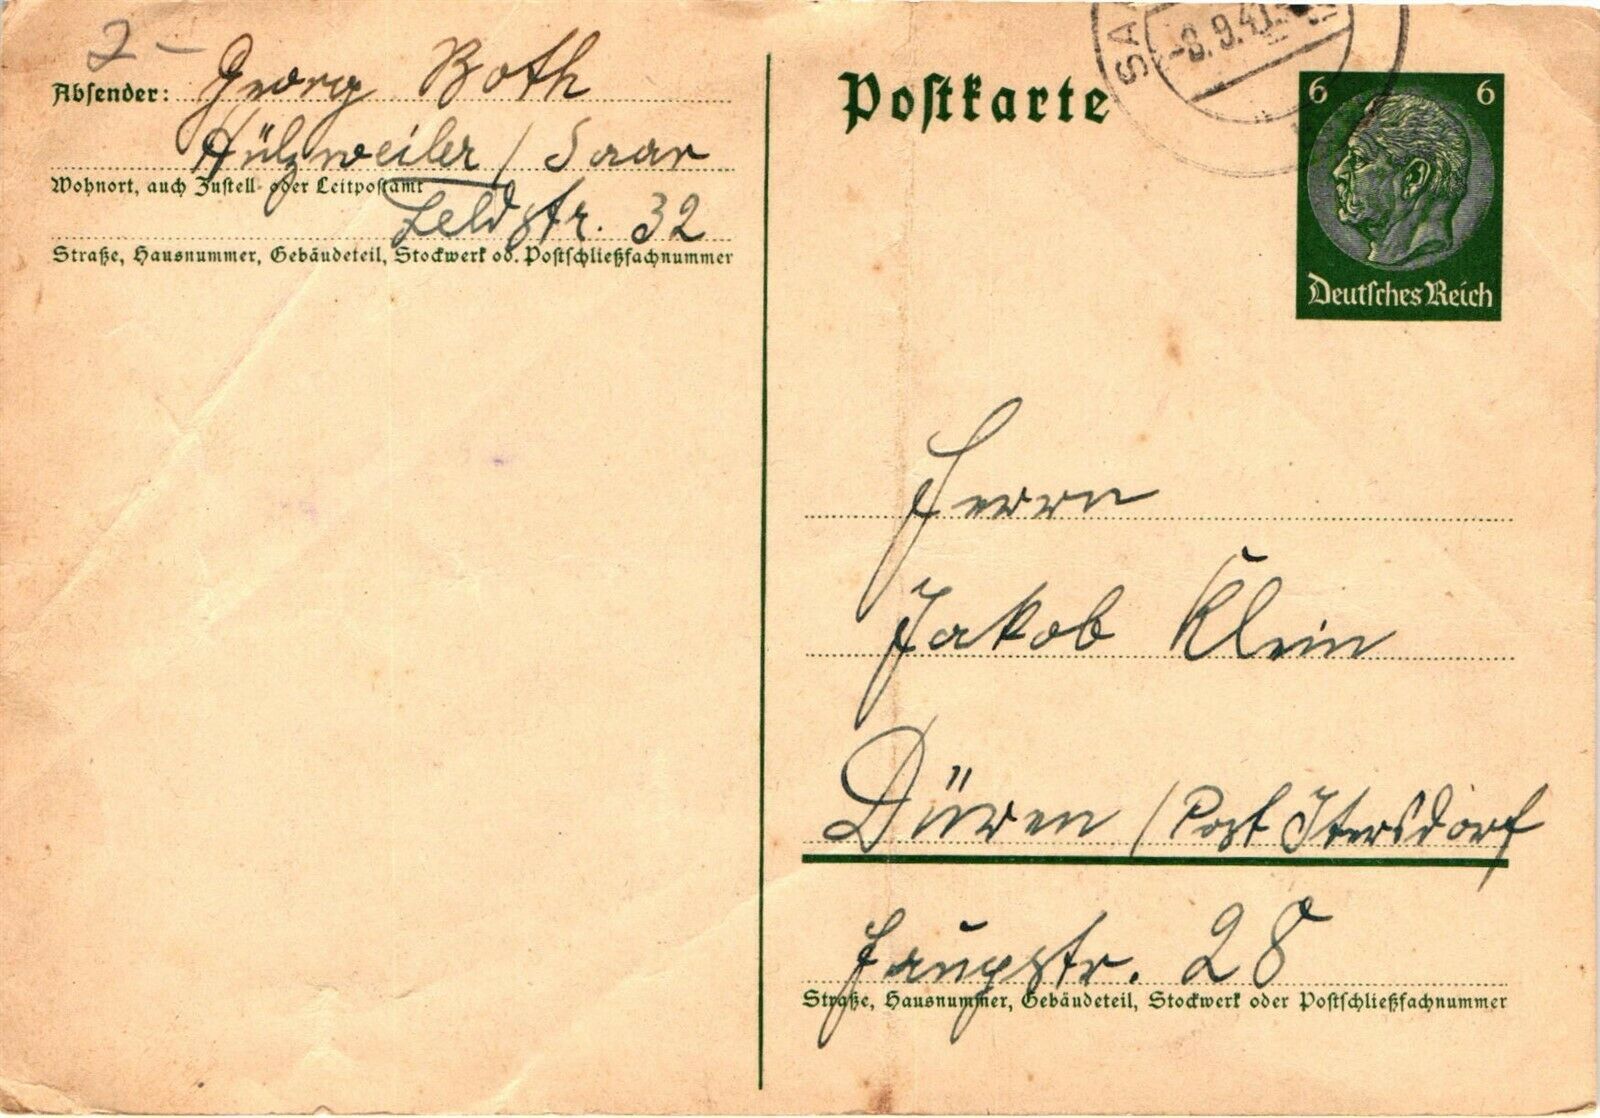 2 –
Absender: Georg Both
Hülzweiler / Saar
Wohnort, auch Zustell- oder Leitpostamt
Feldstr. 32
Straße, Hausnummer, Gebäudeteil, Stockwerk od. Postschließfachnummer
Postkarte
SA
-8.9.41
6 6
Deutsches Reich
Herrn
Jakob Klein
Düren / Post Itersdorf
Hauptstr. 28
Straße, Hausnummer, Gebäudeteil, Stockwerk oder Postschließfachnummer